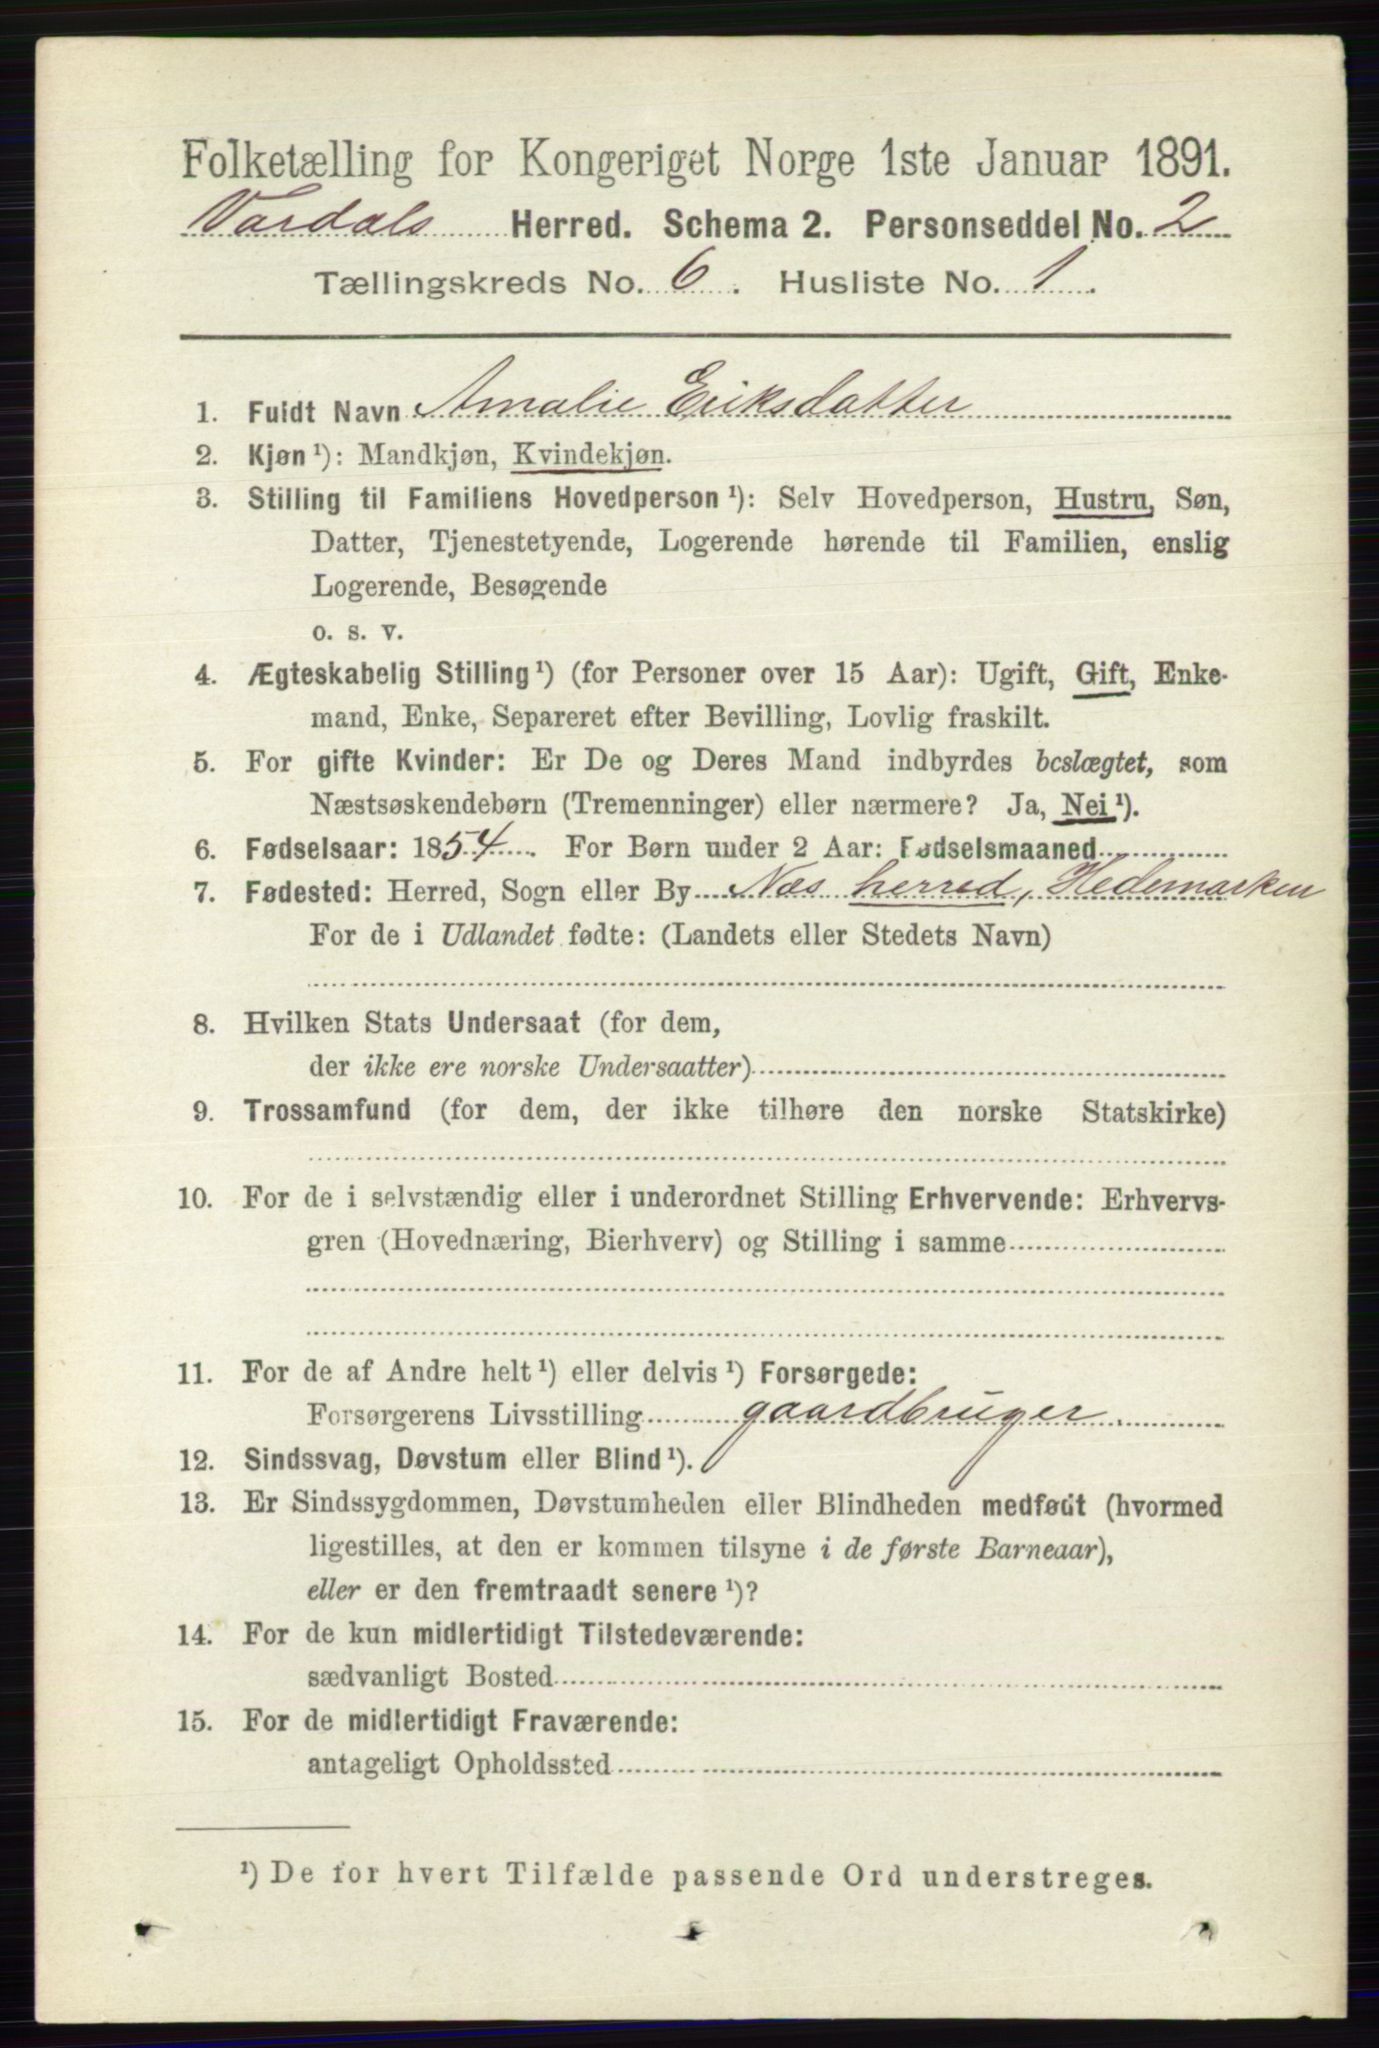 Folketælling for Kongeriget Norge 1ste Januar 1891.
Vardals Herred. Schema 2. Personseddel No. 2
Tællingskreds No. 6. Husliste No. 1.
1. Fuldt Navn Amalie Eriksdatter
2. Kjøn ¹): Mandkjøn, Kvindekjøn.
3. Stilling til Familiens Hovedperson ¹): Selv Hovedperson, Hustru, Søn,
Datter, Tjenestetyende, Logerende hørende til Familien, enslig
Logerende, Besøgende
o. s. v.
4. Ægteskabelig Stilling ¹) (for Personer over 15 Aar): Ugift, Gift, Enke-
mand, Enke, Separeret efter Bevilling, Lovlig fraskilt.
5. For gifte Kvinder: Er De og Deres Mand indbyrdes beslægtet, som
Næstsøskendebørn (Tremenninger) eller nærmere? Ja, Nei ¹).
6. Fødselsaar: 1854. For Børn under 2 Aar: Fødselsmaaned
7. Fødested: Herred, Sogn eller By Næs herred, Hedemarken
For de i Udlandet fødte: (Landets eller Stedets Navn)
8. Hvilken Stats Undersaat (for dem,
der ikke ere norske Undersaatter)
9. Trossamfund (for dem, der ikke tilhøre den norske Statskirke)
10. For de i selvstændig eller i underordnet Stilling Erhvervende: Erhvervs-
gren (Hovednæring, Bierhverv) og Stilling i samme
11. For de af Andre helt ¹) eller delvis ¹) Forsørgede:
Forsørgerens Livsstilling gaardbruger.
12. Sindssvag, Døvstum eller Blind ¹).
13. Er Sindssygdommen, Døvstumheden eller Blindheden medfødt (hvormed
ligestilles, at den er kommen tilsyne i de første Barneaar),
eller er den fremtraadt senere ¹)?
14. For de kun midlertidigt Tilstedeværende:
sædvanligt Bosted
15. For de midlertidigt Fraværende:
antageligt Opholdssted
¹) De for hvert Tilfælde passende Ord understreges.